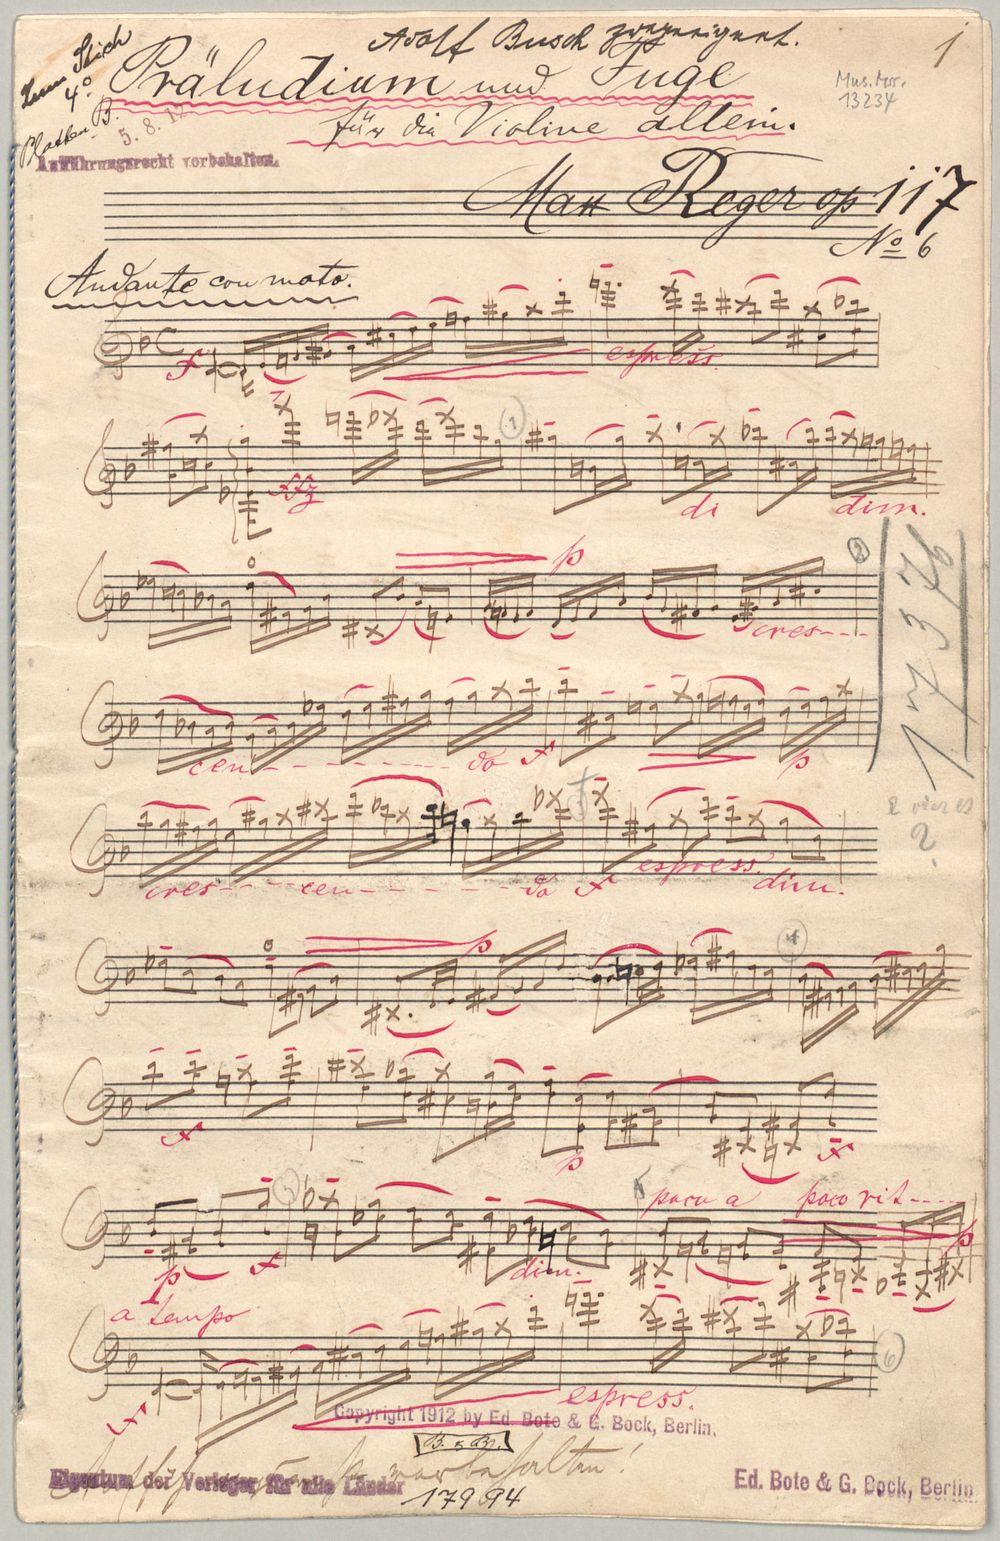 Adolf Busch zugeeignet.
1
Zum Stich
4°
Platten B.
Präludium und Fuge
Mus. Ms.
13234
für die Violine allein.
5. 8. 12
Aufführungsrecht vorbehalten.
Max Reger op 117
No 6
Andante con moto.
f
espress.
1
ffz
di
dim.
p
2
cres - - -
17376
cen - - - - - - - - do f
p
cres - - - cen - - - - - - do f
espress.
dim.
2
?
p
4
f
p
f
5
poco a poco rit - - - -
p
f
dim.
p
a tempo
6
f
espress.
Copyright 1912 by Ed. Bote & G. Bock, Berlin.
B. & B.
vorbehalten!
Eigentum der Verleger für alle Länder
17994
Ed. Bote & G. Bock, Berlin.